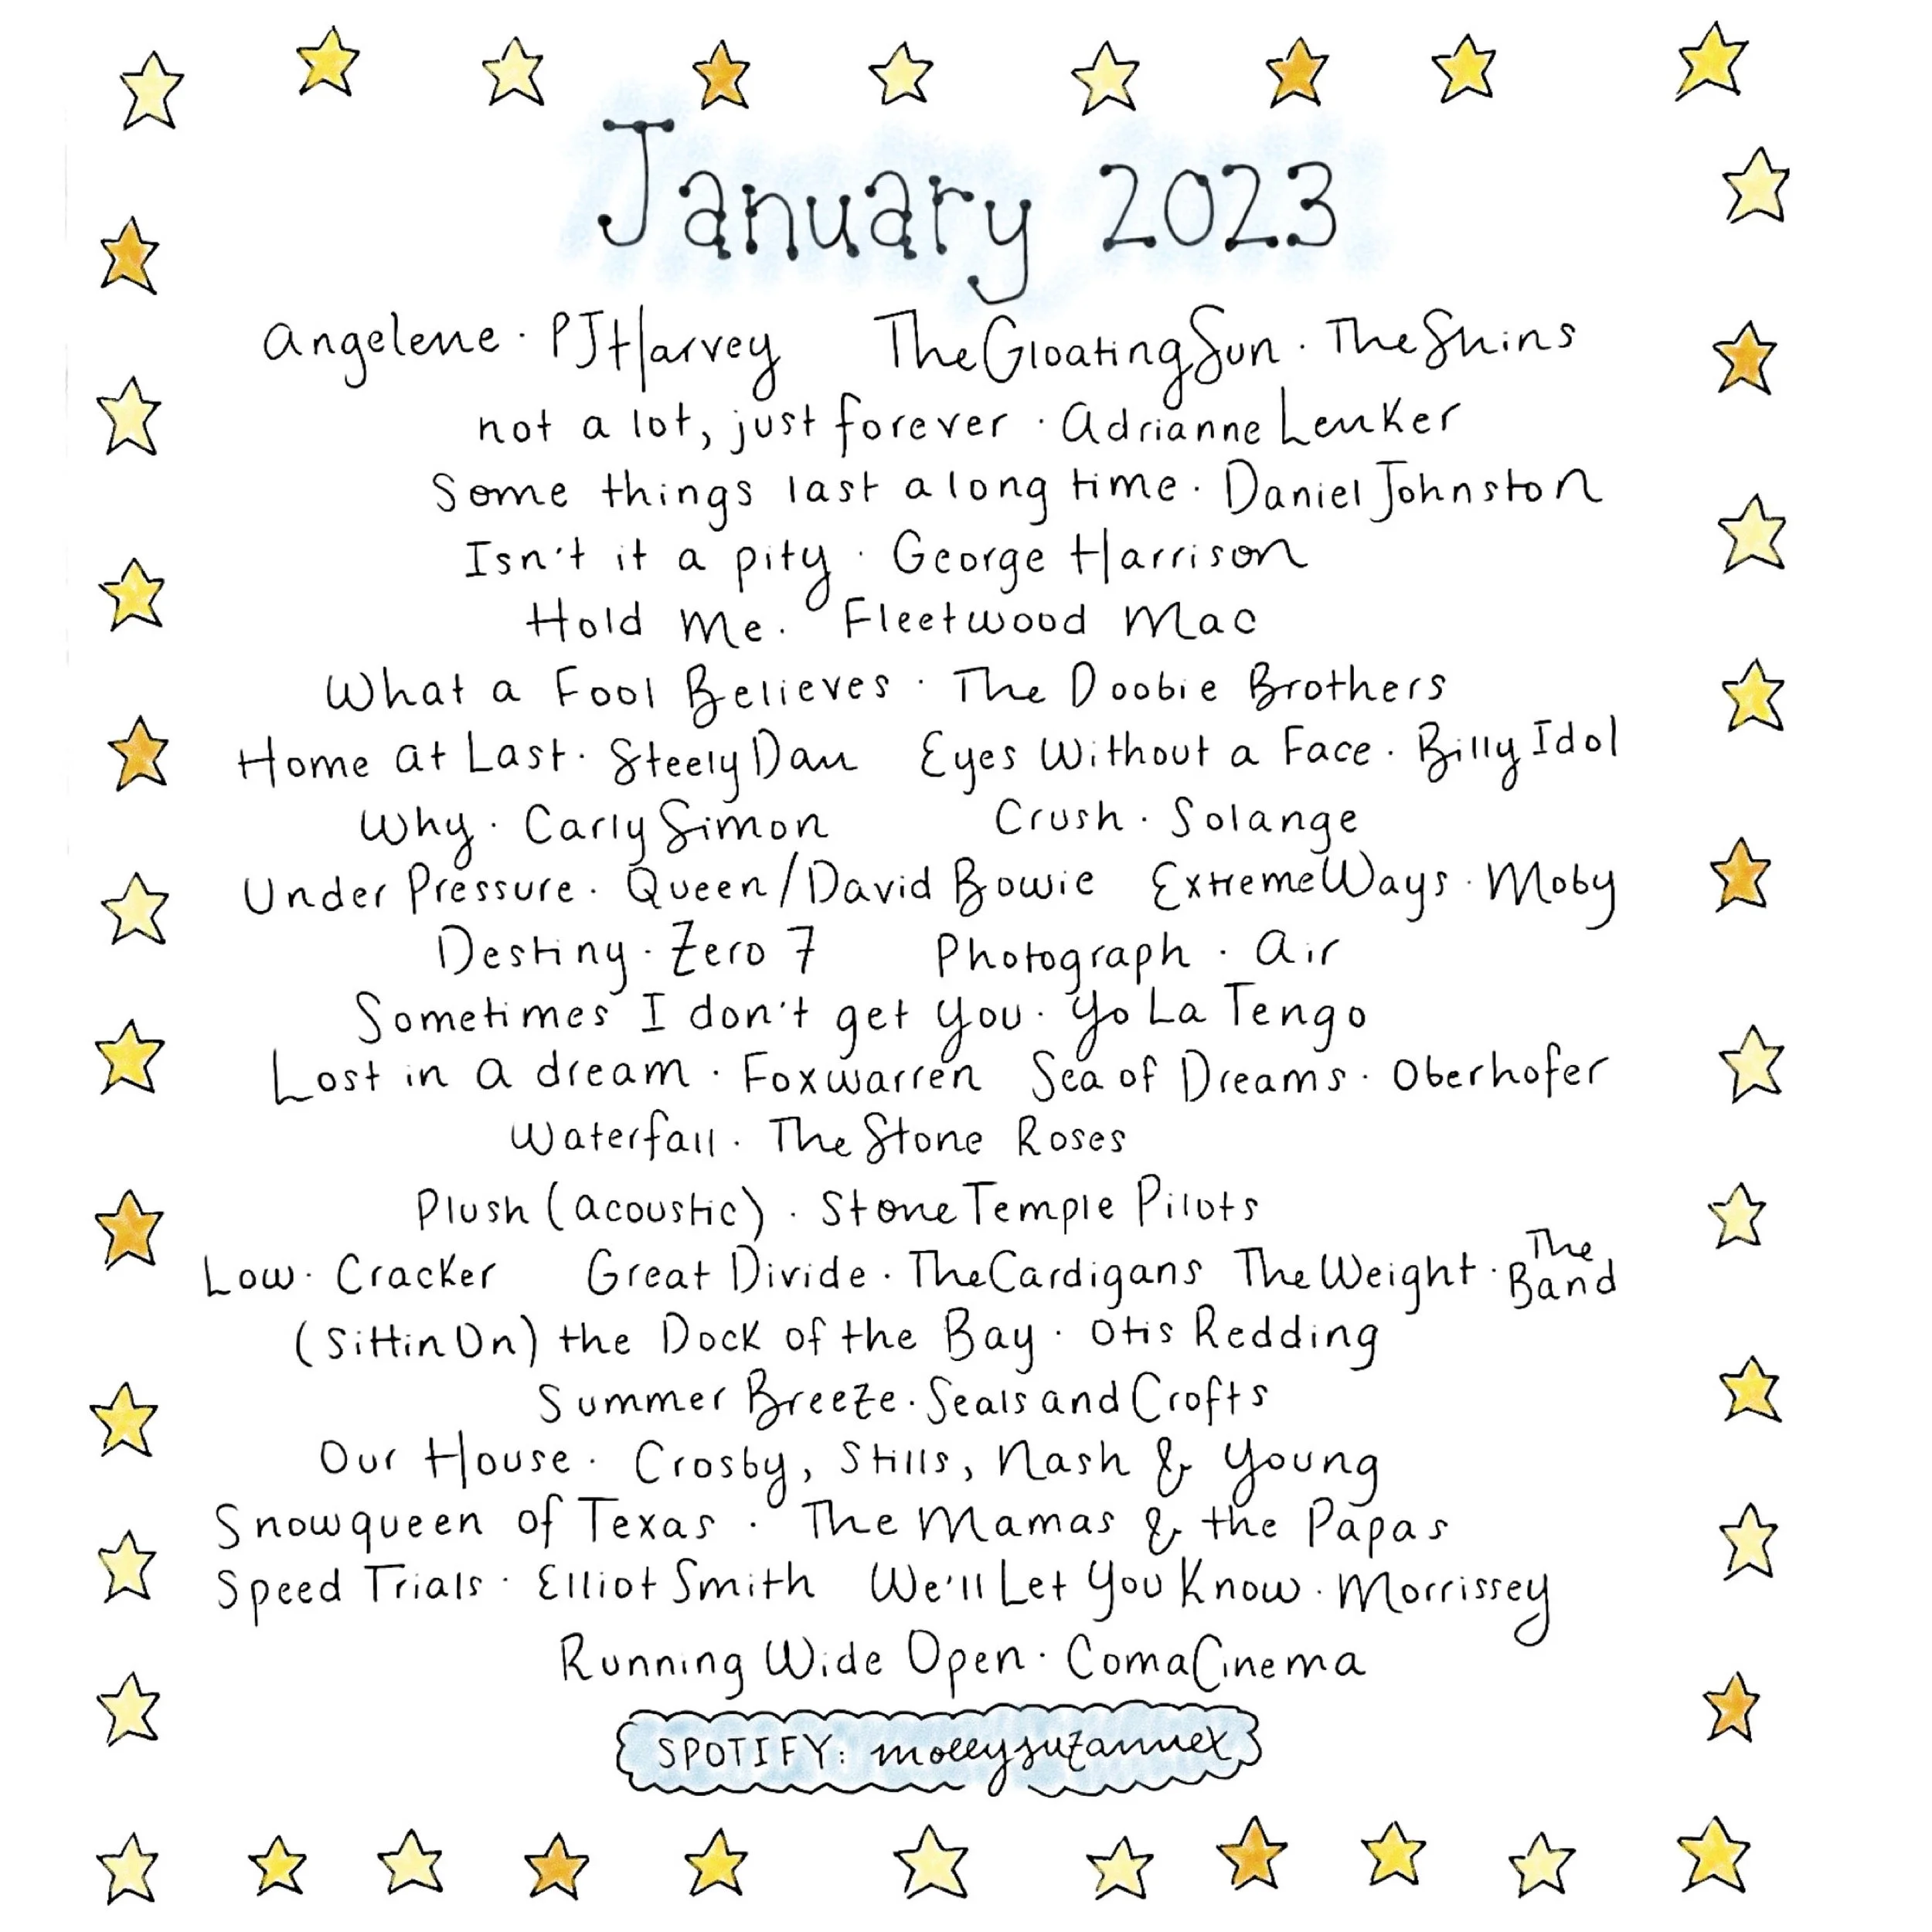 January 2023
Angelene · PJ Harvey The Gloating Sun · The Shins
not a lot, just forever · Adrianne Lenker
Some things last a long time · Daniel Johnston
Isn't it a pity · George Harrison
Hold Me · Fleetwood Mac
What a Fool Believes · The Doobie Brothers
Home at Last · Steely Dan Eyes Without a Face · Billy Idol
Why · Carly Simon Crush · Solange
Under Pressure · Queen/David Bowie Extreme Ways · Moby
Destiny · Zero 7 Photograph · Air
Sometimes I don't get you · Yo La Tengo
Lost in a dream · Foxwarren Sea of Dreams · Oberhofer
Waterfall · The Stone Roses
Plush (acoustic) · Stone Temple Pilots
Low · Cracker Great Divide · The Cardigans The Weight · The Band
(Sittin On) the Dock of the Bay · Otis Redding
Summer Breeze · Seals and Crofts
Our House · Crosby, Stills, Nash & Young
Snowqueen of Texas · The Mamas & the Papas
Speed Trials · Elliot Smith We'll Let You Know · Morrissey
Running Wide Open · Coma Cinema
SPOTIFY: mollysuzannex